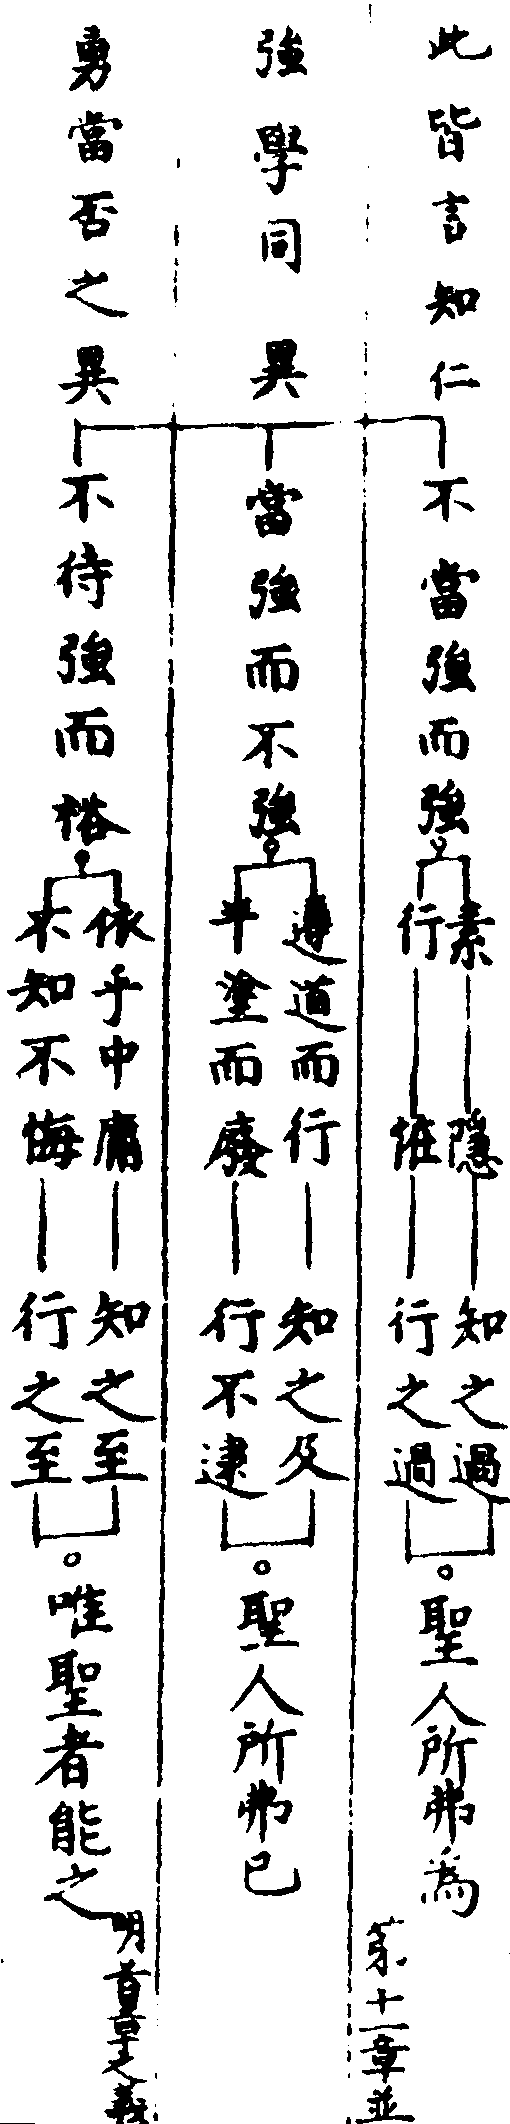 此皆言知仁
強學同異
勇當否之異
不當強而強
素隱
行怪
知之過
行之過
聖人所弗為
當強而不強
遵道而行
半塗而廢
知之及
行不逮
聖人所弗已
不待強而裕
依乎中庸
不知不悔
知之至
行之至
唯聖者能之
第十一章並
明首章之義